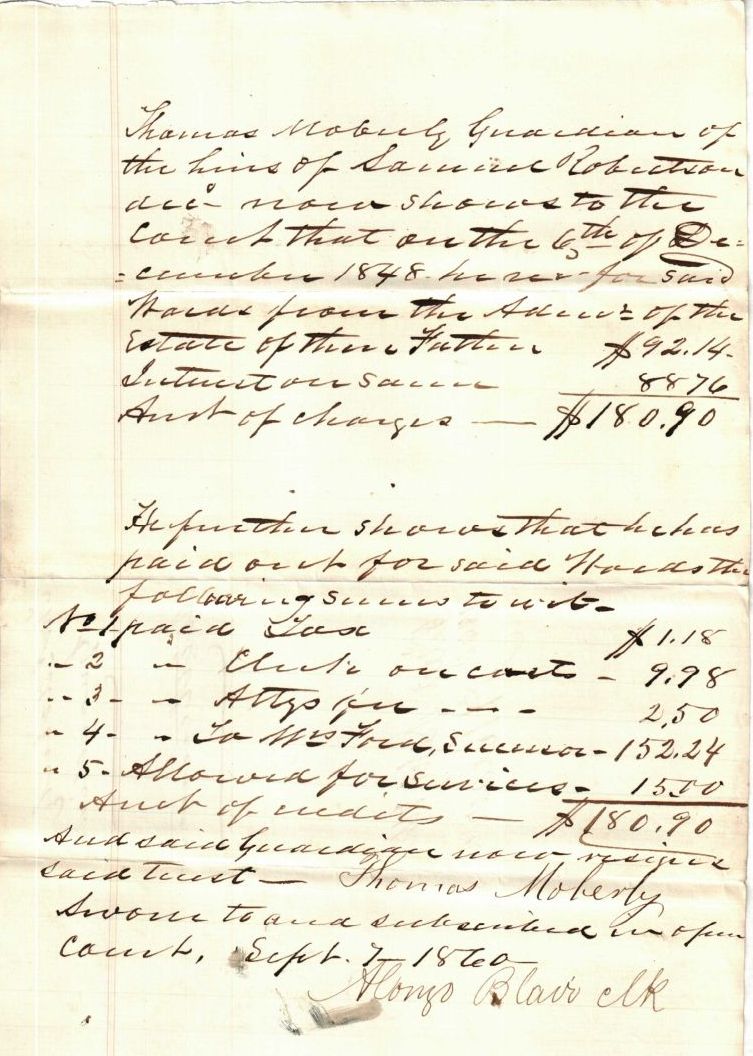 Thomas Moberly Guardian of
the heirs of Samuel Robertson
decd now shows to the
Court that on the 6th of De=
=cember 1848 he recd for said
Wards from the Admr of the
Estate of their Father $92.14
Interest on same 8876
Amt of charges — $180.90
He further shows that he has
paid out for said Wards the
following sums to wit-
No 1 paid Tax $1.18
" 2 " Clerk on costs - 9.98
" 3 - " Attys fee - - - 2,50
" 4 - " To Wm Ford, - 152.24
" 5 - Allowed for services - 15.00
Amt of credits — $180.90
And said Guardian now resigns
said trust — Thomas Moberly
Sworn to and subscribed in open
Court, Sept. 7 1860
Alonzo Blair clk